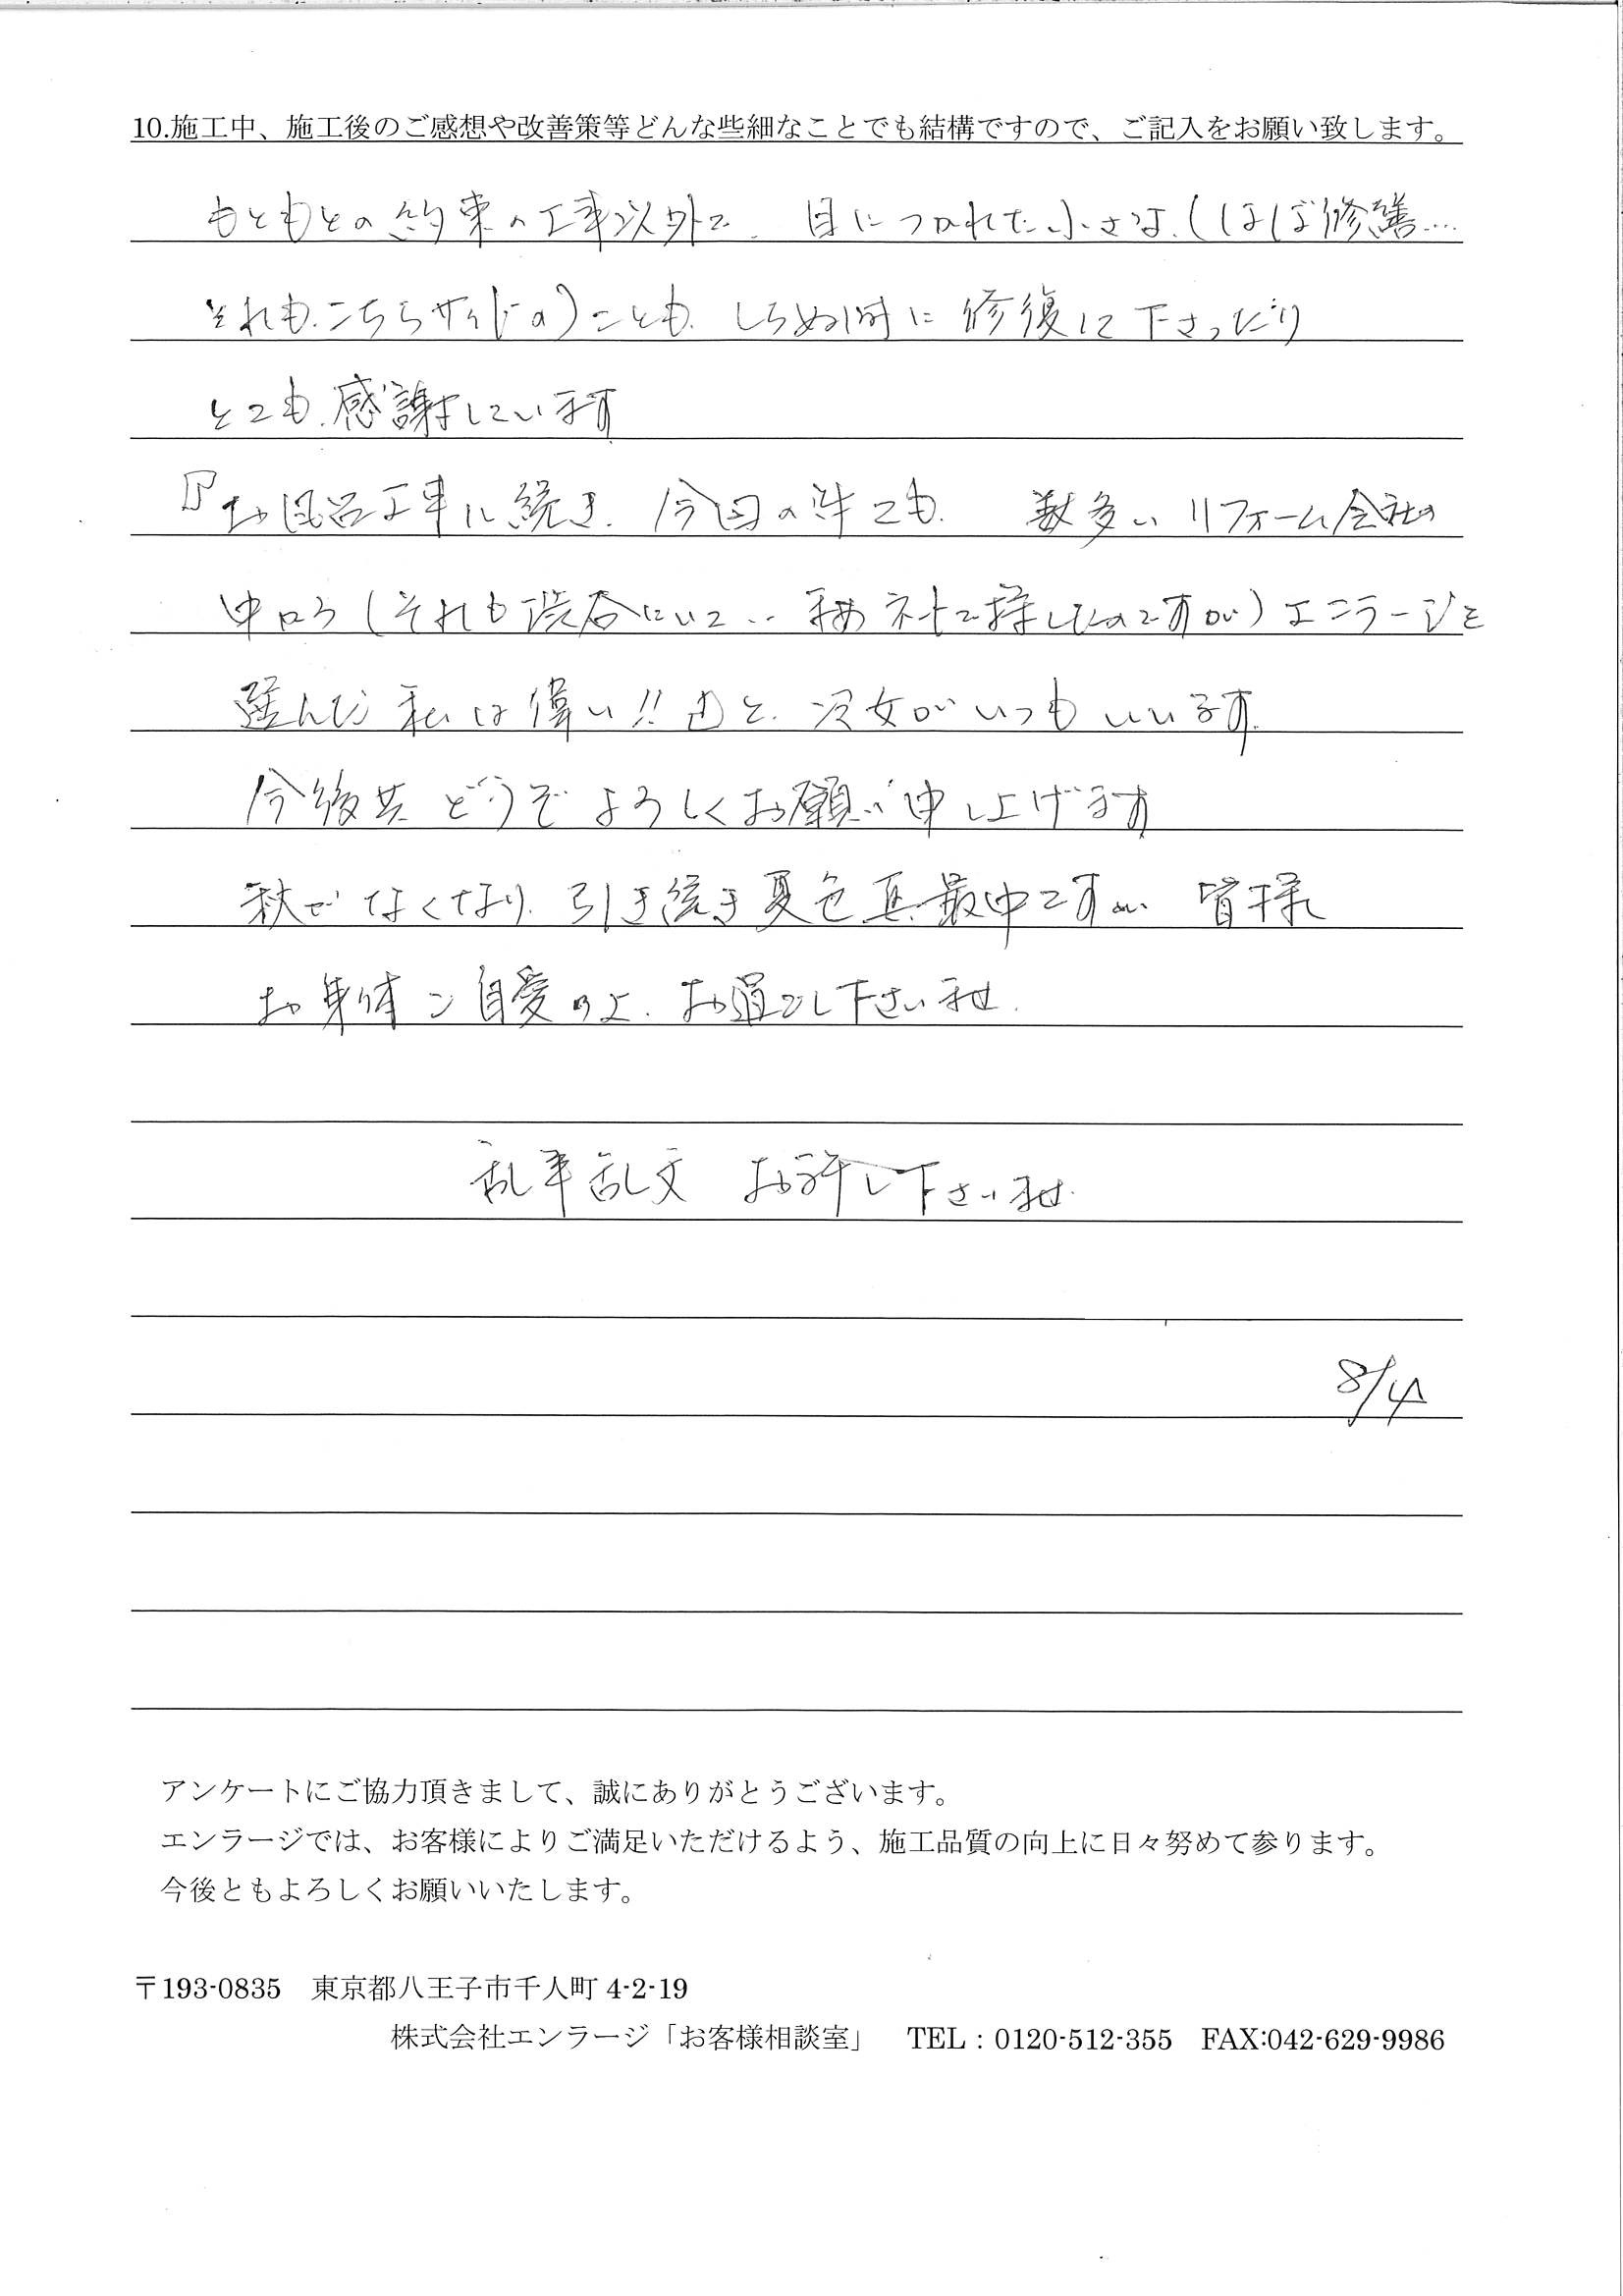 10.施工中、施工後のご感想や改善策等どんな些細なことでも結構ですので、ご記入をお願い致します。
もともとの約束の工事以外で、目につかれた小さな、(ほぼ修繕…
それも、こちらサイドの)ことも、しらぬ間に修復して下さったり
とても、感謝しています
『お風呂工事に続き、今回の件でも、数多いリフォーム会社の
中から(それも渋谷にいて‥ネットで探したのですが)エンラージを
選んだ私は偉い!!』と、次女がいつもいいます。
今後共どうぞよろしくお願い申し上げます
秋がなくなり、引き続き夏色真最中ですが、皆様
お身体ご自愛の上、お過ごし下さいませ。
乱筆乱文 お許し下さいませ。
8/4
アンケートにご協力頂きまして、誠にありがとうございます。
エンラージでは、お客様によりご満足いただけるよう、施工品質の向上に日々努めて参ります。
今後ともよろしくお願いいたします。
〒193-0835 東京都八王子市千人町 4-2-19
株式会社エンラージ「お客様相談室」 TEL:0120-512-355 FAX:042-629-9986